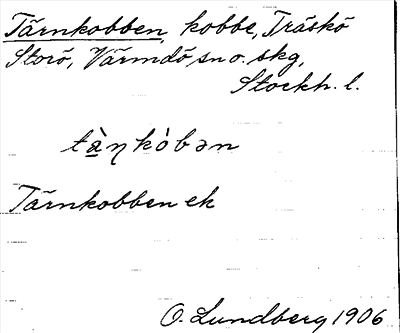 Tärnkobben, kobbe, Träskö
Storö, Värmdö sn o. skg,
Stockh. l.
tàŋkòbən
Tärnkobben ek
O. Lundberg 1906